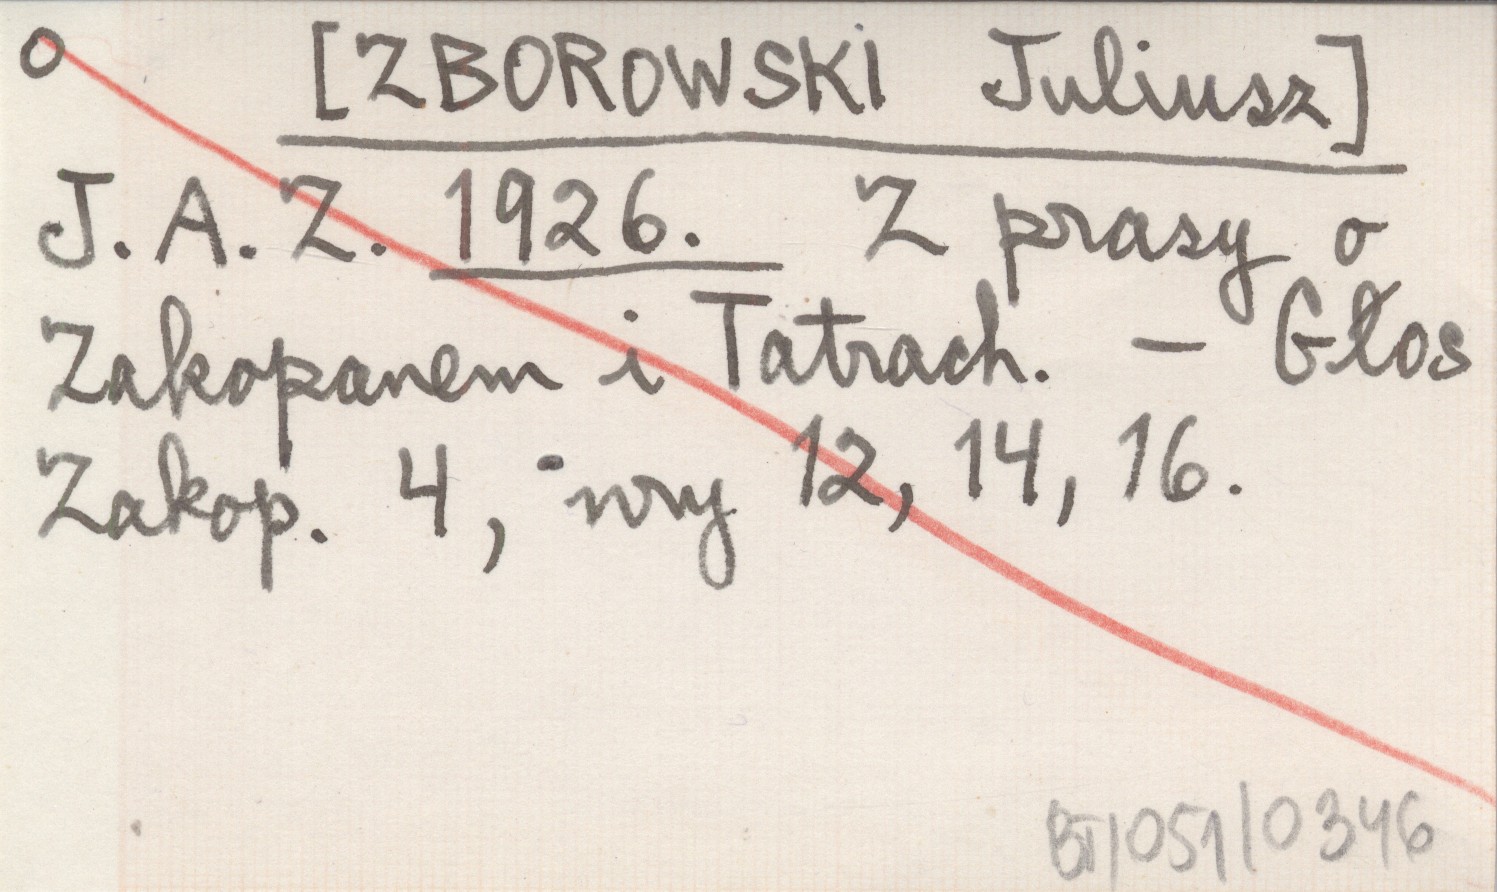 o [ZBOROWSKI Juliusz]
J. A. Z. 1926. Z prasy o
Zakopanem i Tatrach. — Głos
Zakop. 4, nry 12, 14, 16.
BT/051/0346